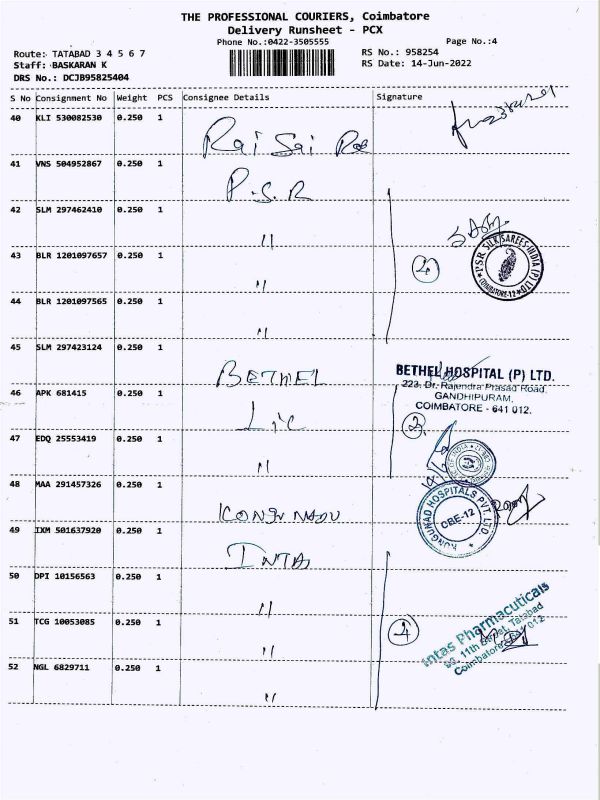 THE PROFESSIONAL COURIERS, Coimbatore
Delivery Runsheet - PCX
Phone No.:0422-3505555 Page No.:4
Route: TATABAD 3 4 5 6 7 RS No.: 958254
Staff: BASKARAN K RS Date: 14-Jun-2022
DRS No.: DCJB95825404
S No Consignment No Weight PCS Consignee Details Signature
40 KLI 530082530 0.250 1 Rai Sai
41 VNS 504952867 0.250 1 P.S.R
42 SLM 297462410 0.250 1 "
43 BLR 1201097657 0.250 1 " 4
PSR SILK SAREES INDIA (P) LTD
COIMBATORE-12
44 BLR 1201097565 0.250 1 "
45 SLM 297423124 0.250 1 BETHEL
BETHEL HOSPITAL (P) LTD.
223, Dr. Rajendra Prasad Road,
GANDHIPURAM,
COIMBATORE - 641 012.
46 APK 681415 0.250 1 Lic 2
47 EDQ 25553419 0.250 1 "
48 MAA 291457326 0.250 1 KONGU NADU
KONGUNAD HOSPITALS PVT. LTD
CBE-12
49 IXM 501637920 0.250 1 INTAS
50 DPI 10156563 0.250 1 "
51 TCG 10053085 0.250 1 " 4
Intas Pharmaceuticals
11th Street, Tatabad
Coimbatore 012
52 NGL 6829711 0.250 1 "